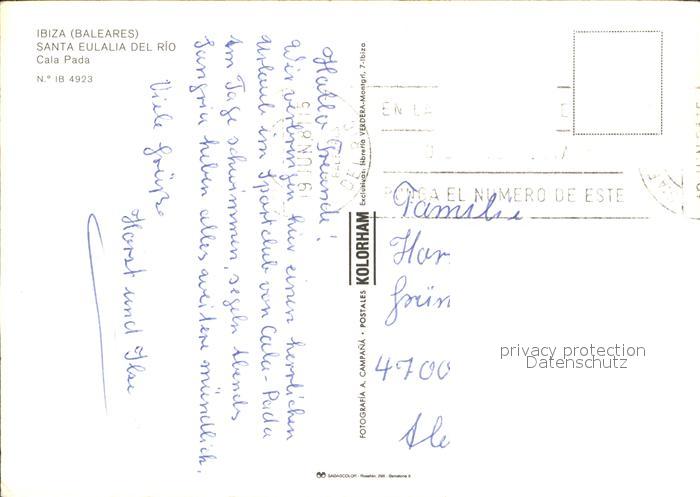 IBIZA (BALEARES)
SANTA EULALIA DEL RÍO
Cala Pada
N.° IB 4923
Hallo Freunde!
Wir verbringen hier einen herrlichen
Urlaub im Sportclub von Cala-Pada
Am Tage schwimmen, segeln Abends
Sangria heben alles weitere mündlich.
Viele Grüße
Horst und Ilse
FOTOGRAFÍA A. CAMPAÑÁ • POSTALES KOLORHAM Exclusivas: librería VERDERA-Montgrí, 7-Ibiza
EN LA
PONGA EL NUMERO DE ESTE
19 JUN
Familie
Har
Grün
4700
privacy protection
Datenschutz
SADAGCOLOR - Rosellón, 298 - Barcelona